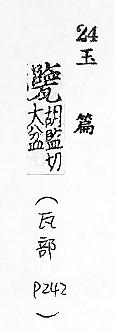 24 玉篇
㽉
胡監切
大盆
（瓦部 P242）